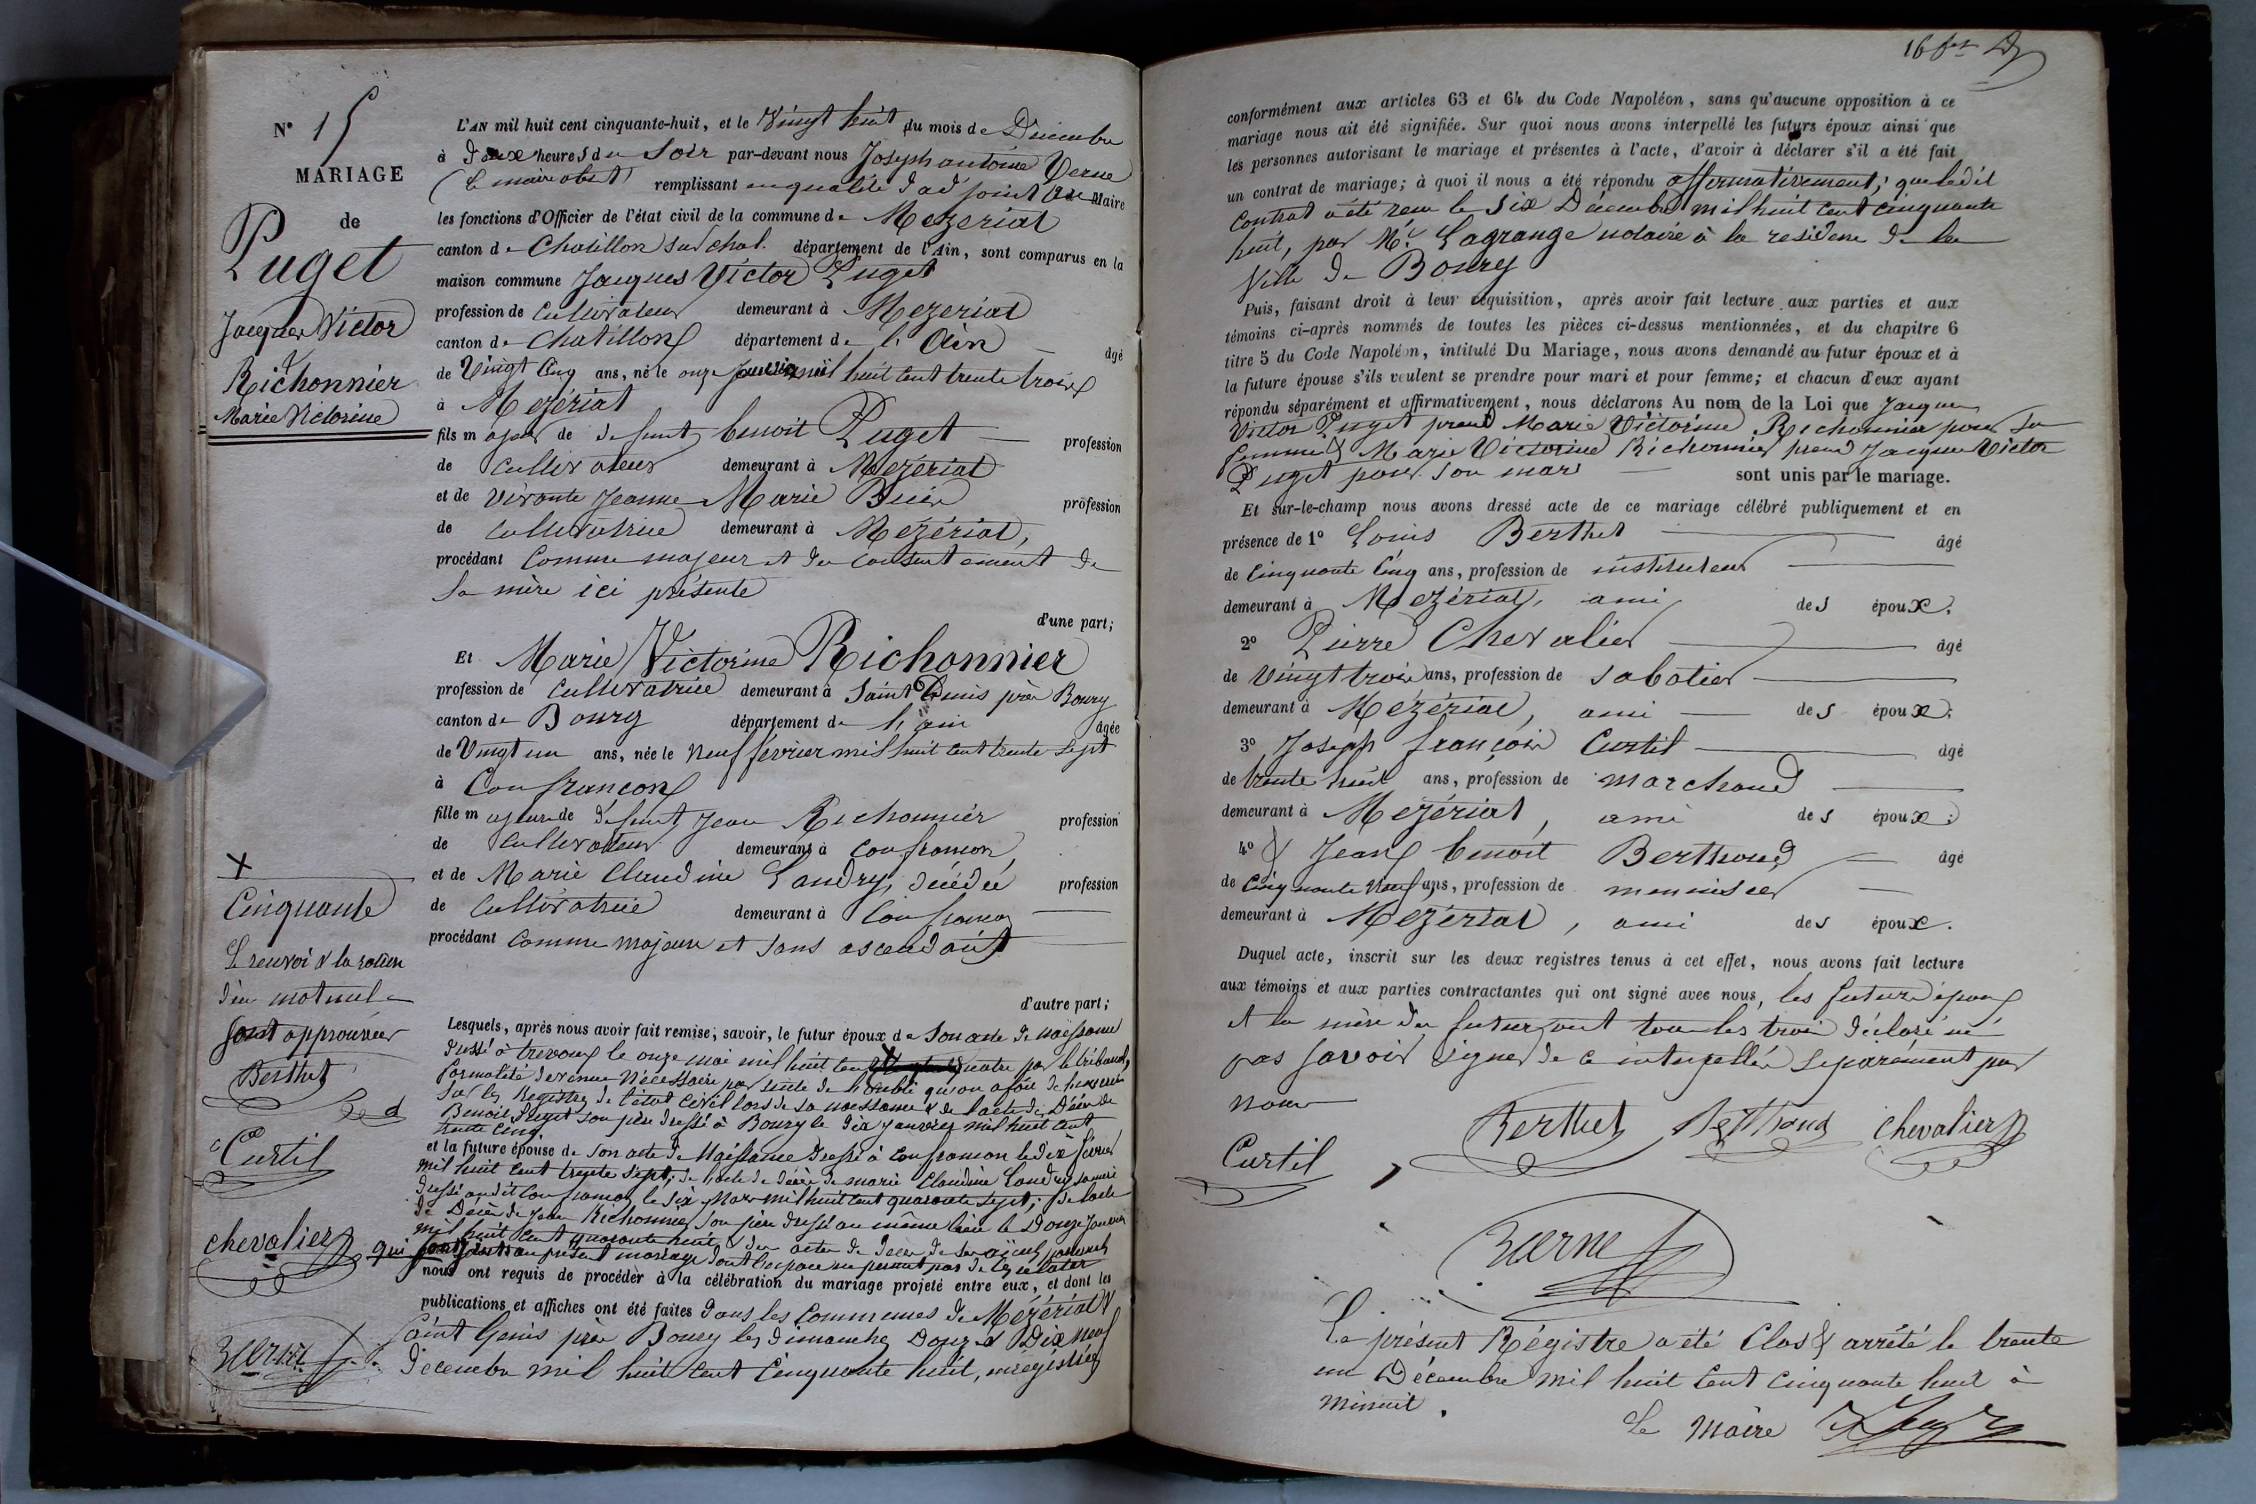 N° 15
MARIAGE
de
Puget
Jacques Victor
&
Richonnier
Marie Victorine
L'AN mil huit cent cinquante-huit, et le Vingt huit du mois de Décembre
à deux heures du Soir par-devant nous Joseph antoine Verne
(le maire absent) remplissant en qualité d'adjoint au Maire
les fonctions d'Officier de l'état civil de la commune de Mezeriat
canton de Chatillon sur chal. département de l'Ain, sont comparus en la
maison commune Jacques Victor Puget
profession de cultivateur demeurant à Mezeriat
canton de Chatillon département de l'Ain âgé
de Vingt Cinq ans, né le onze mil huit cent trente trois
à Mezériat
fils majeur de defunt benoit Puget profession
de cultivateur demeurant à Mezériat
et de vivante Jeanne Marie profession
de cultivatrice demeurant à Mezériat,
procédant Comme majeur et du consentement de
sa mère ici présente
d'une part;
Et Marie Victorine Richonnier
profession de cultivatrice demeurant à Saint Denis près Bourg
canton de Bourg département de l'ain âgée
de Vingt un ans, née le neuf février mil huit cent trente sept
à Confrancon
fille majeure de défunt Jean Richonnier profession
de Cultivateur demeurant à Confrancon,
et de Marie Claudine Landry, décédée profession
de Cultivatrice demeurant à Confrancon
procédant comme majeure et sans ascendant
d'autre part;
Lesquels, après nous avoir fait remise; savoir, le futur époux de Son acte de naissance
dressé à trevoux le onze mai mil huit cent X quatre par le tribunal,
formalité devenue Nécessaire par suite de l'oubli qu'on a fait de
sur les Registres de l'état Civil lors de sa naissance & de l'acte de Décès de
Benoit Puget son père dressé à Bourg le dix janvier mil huit cent
trente Cinq
et la future épouse de son acte de Naissance dressé à Confrancon le dix février
mil huit cent trente sept; de l'acte de décès de marie Claudine Landry sa mère
dressé audit Confrancon le six Mars mil huit cent quarante sept; de l'acte
de Décès de Jean Richonnier son père dressé au même lieu le Douze Janvier
mil huit cent quarante huit & des actes de décès de ses aïeuls
qui sont joints au présent mariage dont l'espace ne permet pas de les relater
nous ont requis de procéder à la célébration du mariage projeté entre eux, et dont les
publications et affiches ont été faites dans les Communes de Mézériat &
Saint Genis près Bourg les dimanches Douze & Dix neuf
décembre mil huit cent Cinquante huit, enregistrées
X
Cinquante
Le renvoi & la rature
d'un mot nul
sont approuvés
Berthet
Curtil
chevalier
Verne
16
conformément aux articles 63 et 64 du Code Napoléon, sans qu'aucune opposition à ce
mariage nous ait été signifiée. Sur quoi nous avons interpellé les futurs époux ainsi que
les personnes autorisant le mariage et présentes à l'acte, d'avoir à déclarer s'il a été fait
un contrat de mariage; à quoi il nous a été répondu affirmativement; que ledit
Contrat a été recu le Six Décembre mil huit cent cinquante
huit, par Me. Lagrange notaire à la residence de la
Ville de Bourg
Puis, faisant droit à leur réquisition, après avoir fait lecture aux parties et aux
témoins ci-après nommés de toutes les pièces ci-dessus mentionnées, et du chapitre 6
titre 5 du Code Napoléon, intitulé Du Mariage, nous avons demandé au futur époux et à
la future épouse s'ils veulent se prendre pour mari et pour femme; et chacun d'eux ayant
répondu séparément et affirmativement, nous déclarons Au nom de la Loi que Jacques
Victor Puget prend Marie Victorine Richonnier pour sa
femme & Marie Victorine Richonnier prend Jacques Victor
Puget pour son mari sont unis par le mariage.
Et sur-le-champ nous avons dressé acte de ce mariage célébré publiquement et en
présence de 1° Louis Berthet âgé
de Cinquante Cinq ans, profession de instituteur
demeurant à Mezériat, ami des époux;
2° Pierre Chevalier âgé
de Vingt trois ans, profession de sabotier
demeurant à Mézériat, ami des époux;
3° Joseph françois Curtil âgé
de trente huit ans, profession de marchand
demeurant à Mezériat, ami des époux;
4° & Jean benoit Berthoud âgé
de Cinquante Neuf ans, profession de menuisier
demeurant à Mezériat, ami des époux.
Duquel acte, inscrit sur les deux registres tenus à cet effet, nous avons fait lecture
aux témoins et aux parties contractantes qui ont signé avec nous, les futurs époux
et la mère du futur ont tous les trois déclaré ne
pas savoir signer de ce interpellés séparément par
nous
Berthet Berthoud chevalier
Curtil
Verne
Le présent Régistre a été Clos & arrêté le trente
un Décembre mil huit cent cinquante huit à
minuit.
Le Maire